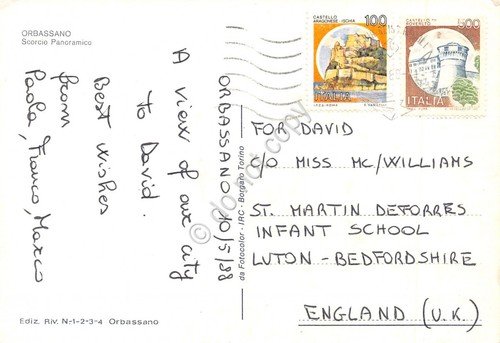 ORBASSANO
Scorcio Panoramico
ORBASSANO 10/5/88
A view of our city
To David.
Best wishes
from
Paola, Franco, Marco
Ediz. Riv. N.1-2-3-4 Orbassano
da Fotocolor - IRC - Borgaro Torino
CASTELLO
ARAGONESE ISCHIA
100
ITALIA
CASTELLO DI
ROVERETO
500
ITALIA
FOR DAVID
C/O MISS MC/WILLIAMS
ST. MARTIN DEFORRES
INFANT SCHOOL
LUTON - BEDFORDSHIRE
ENGLAND (U.K.)
do not copy